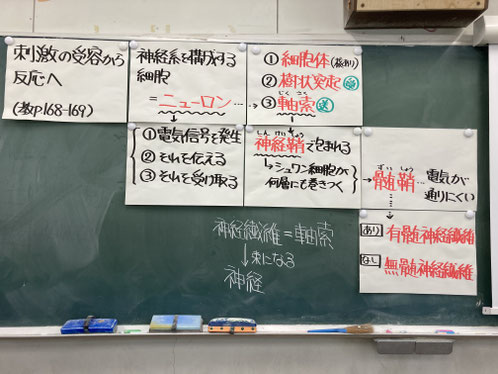 刺激の受容から
反応へ
(教p168-169)
神経系を構成する
細胞
=ニューロン…
①細胞体(核あり)
②樹状突起 受
じく さく
③軸索 送
①電気信号を発生
②それを伝える
③それを受け取る
しん けい しょう
神経鞘で包まれる
↳シュワン細胞が
何層にも巻きつく
ずい しょう
髄鞘…電気が
通りにくい
あり 有髄神経繊維
なし 無髄神経繊維
神経繊維=軸索
↓束になる
神経